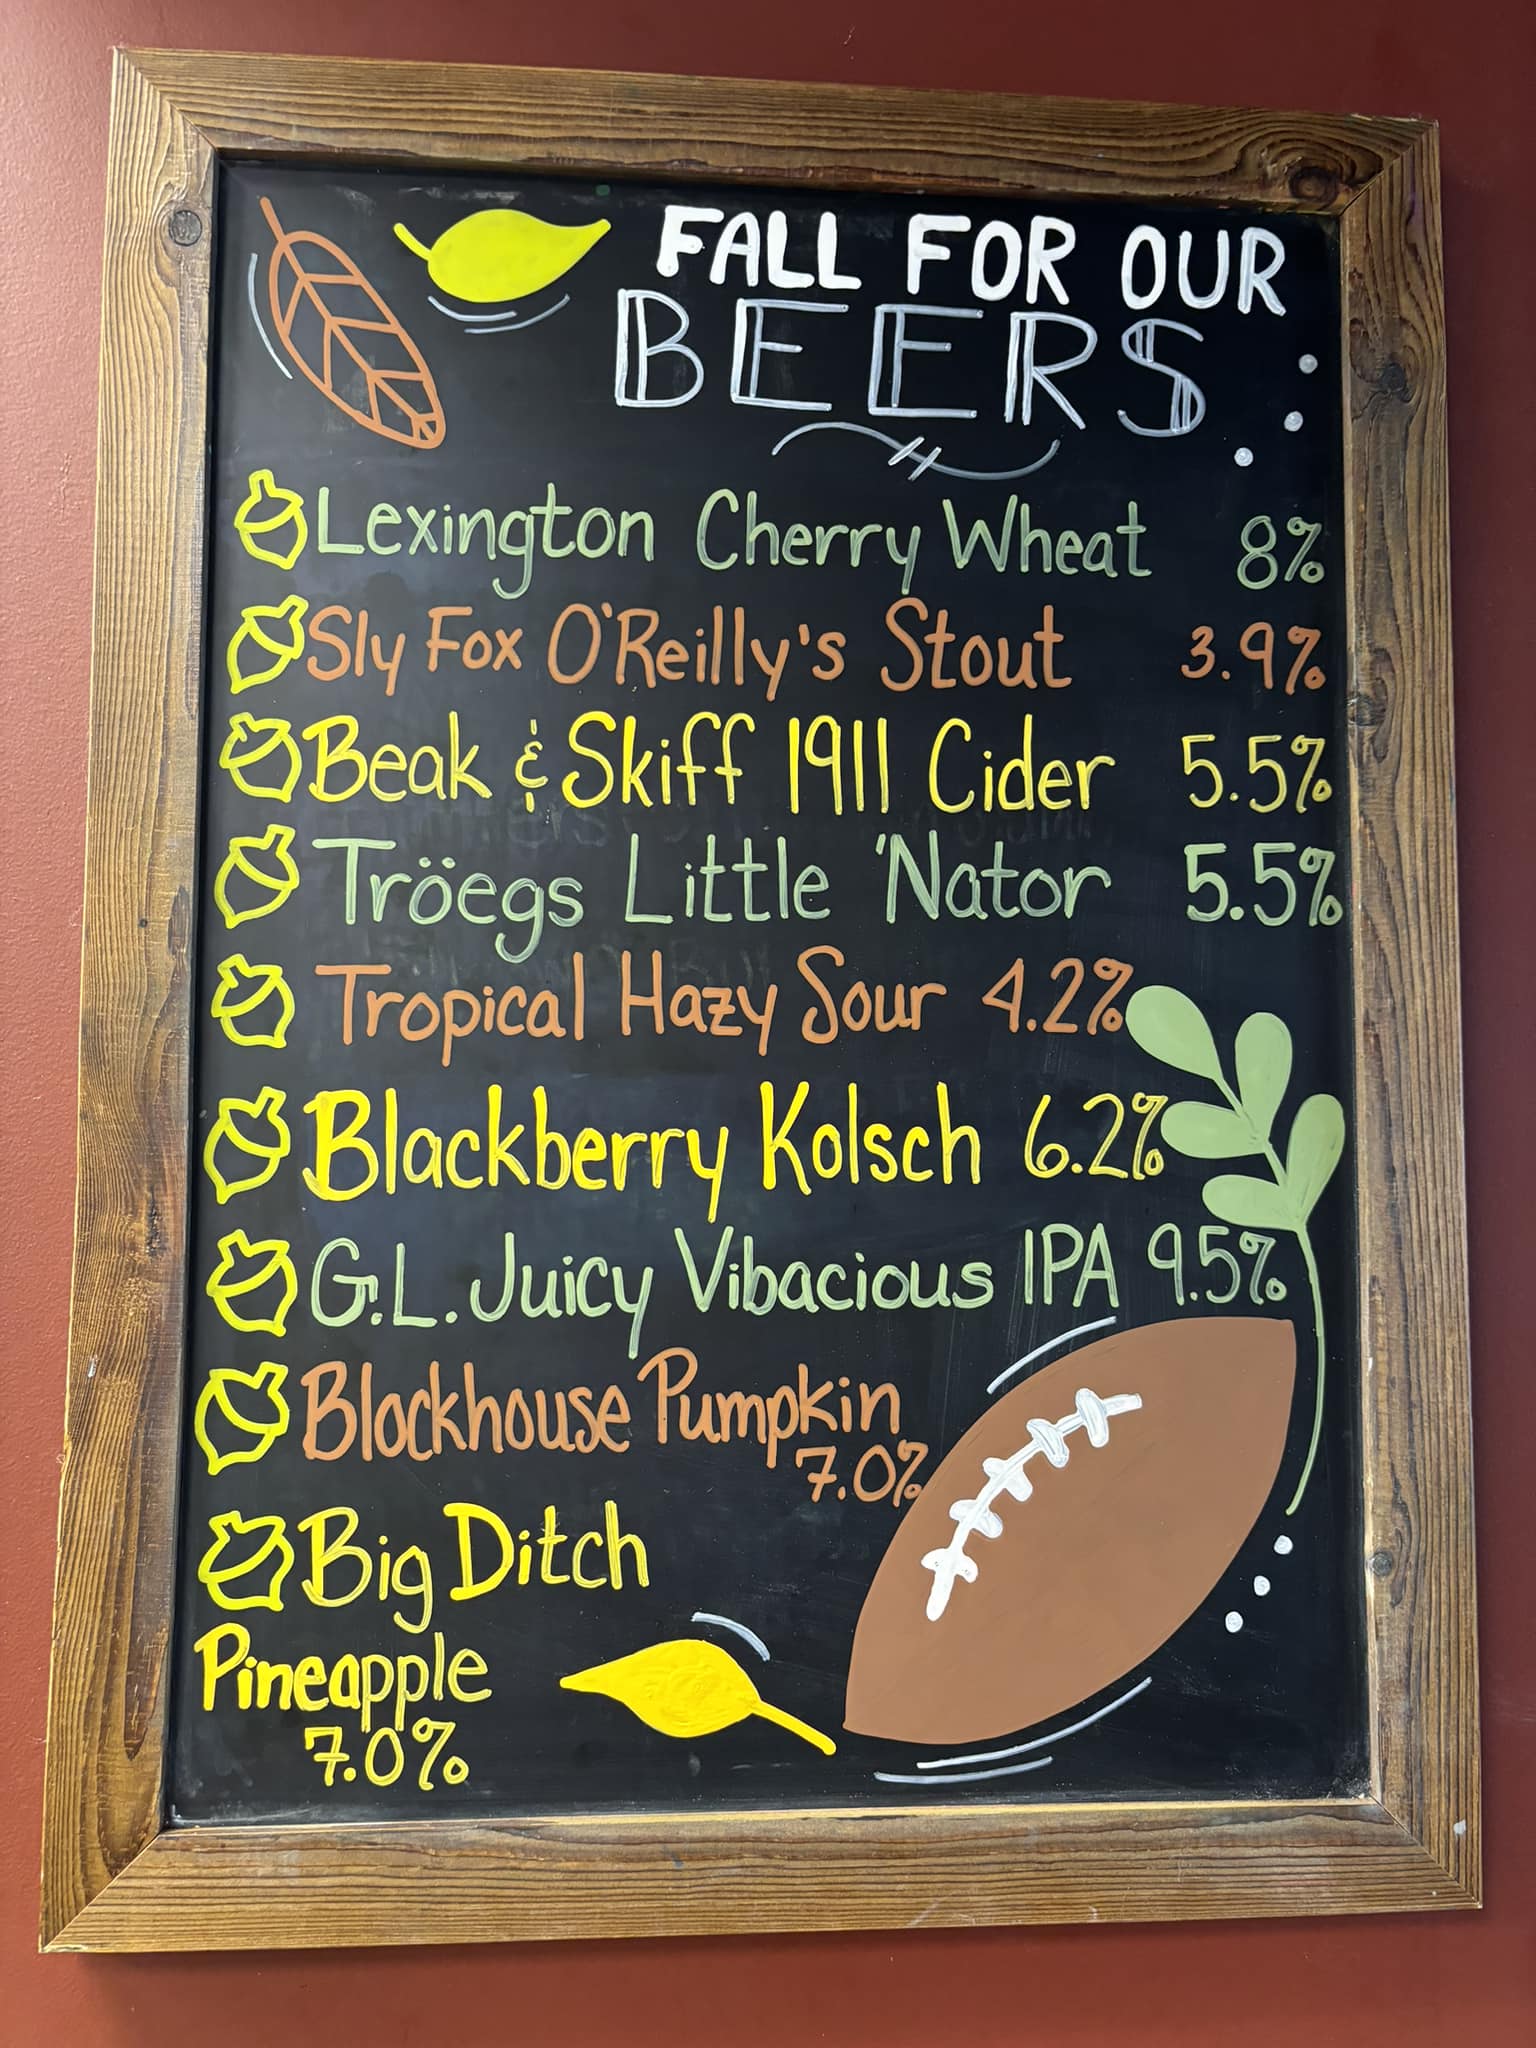 FALL FOR OUR
BEERS
Lexington Cherry Wheat 8%
Sly Fox O'Reilly's Stout 3.9%
Beak & Skiff 1911 Cider 5.5%
Tröegs Little 'Nator 5.5%
Tropical Hazy Sour 4.2%
Blackberry Kolsch 6.2%
G.L. Juicy Vibacious IPA 9.5%
Blockhouse Pumpkin
7.0%
Big Ditch
Pineapple
7.0%